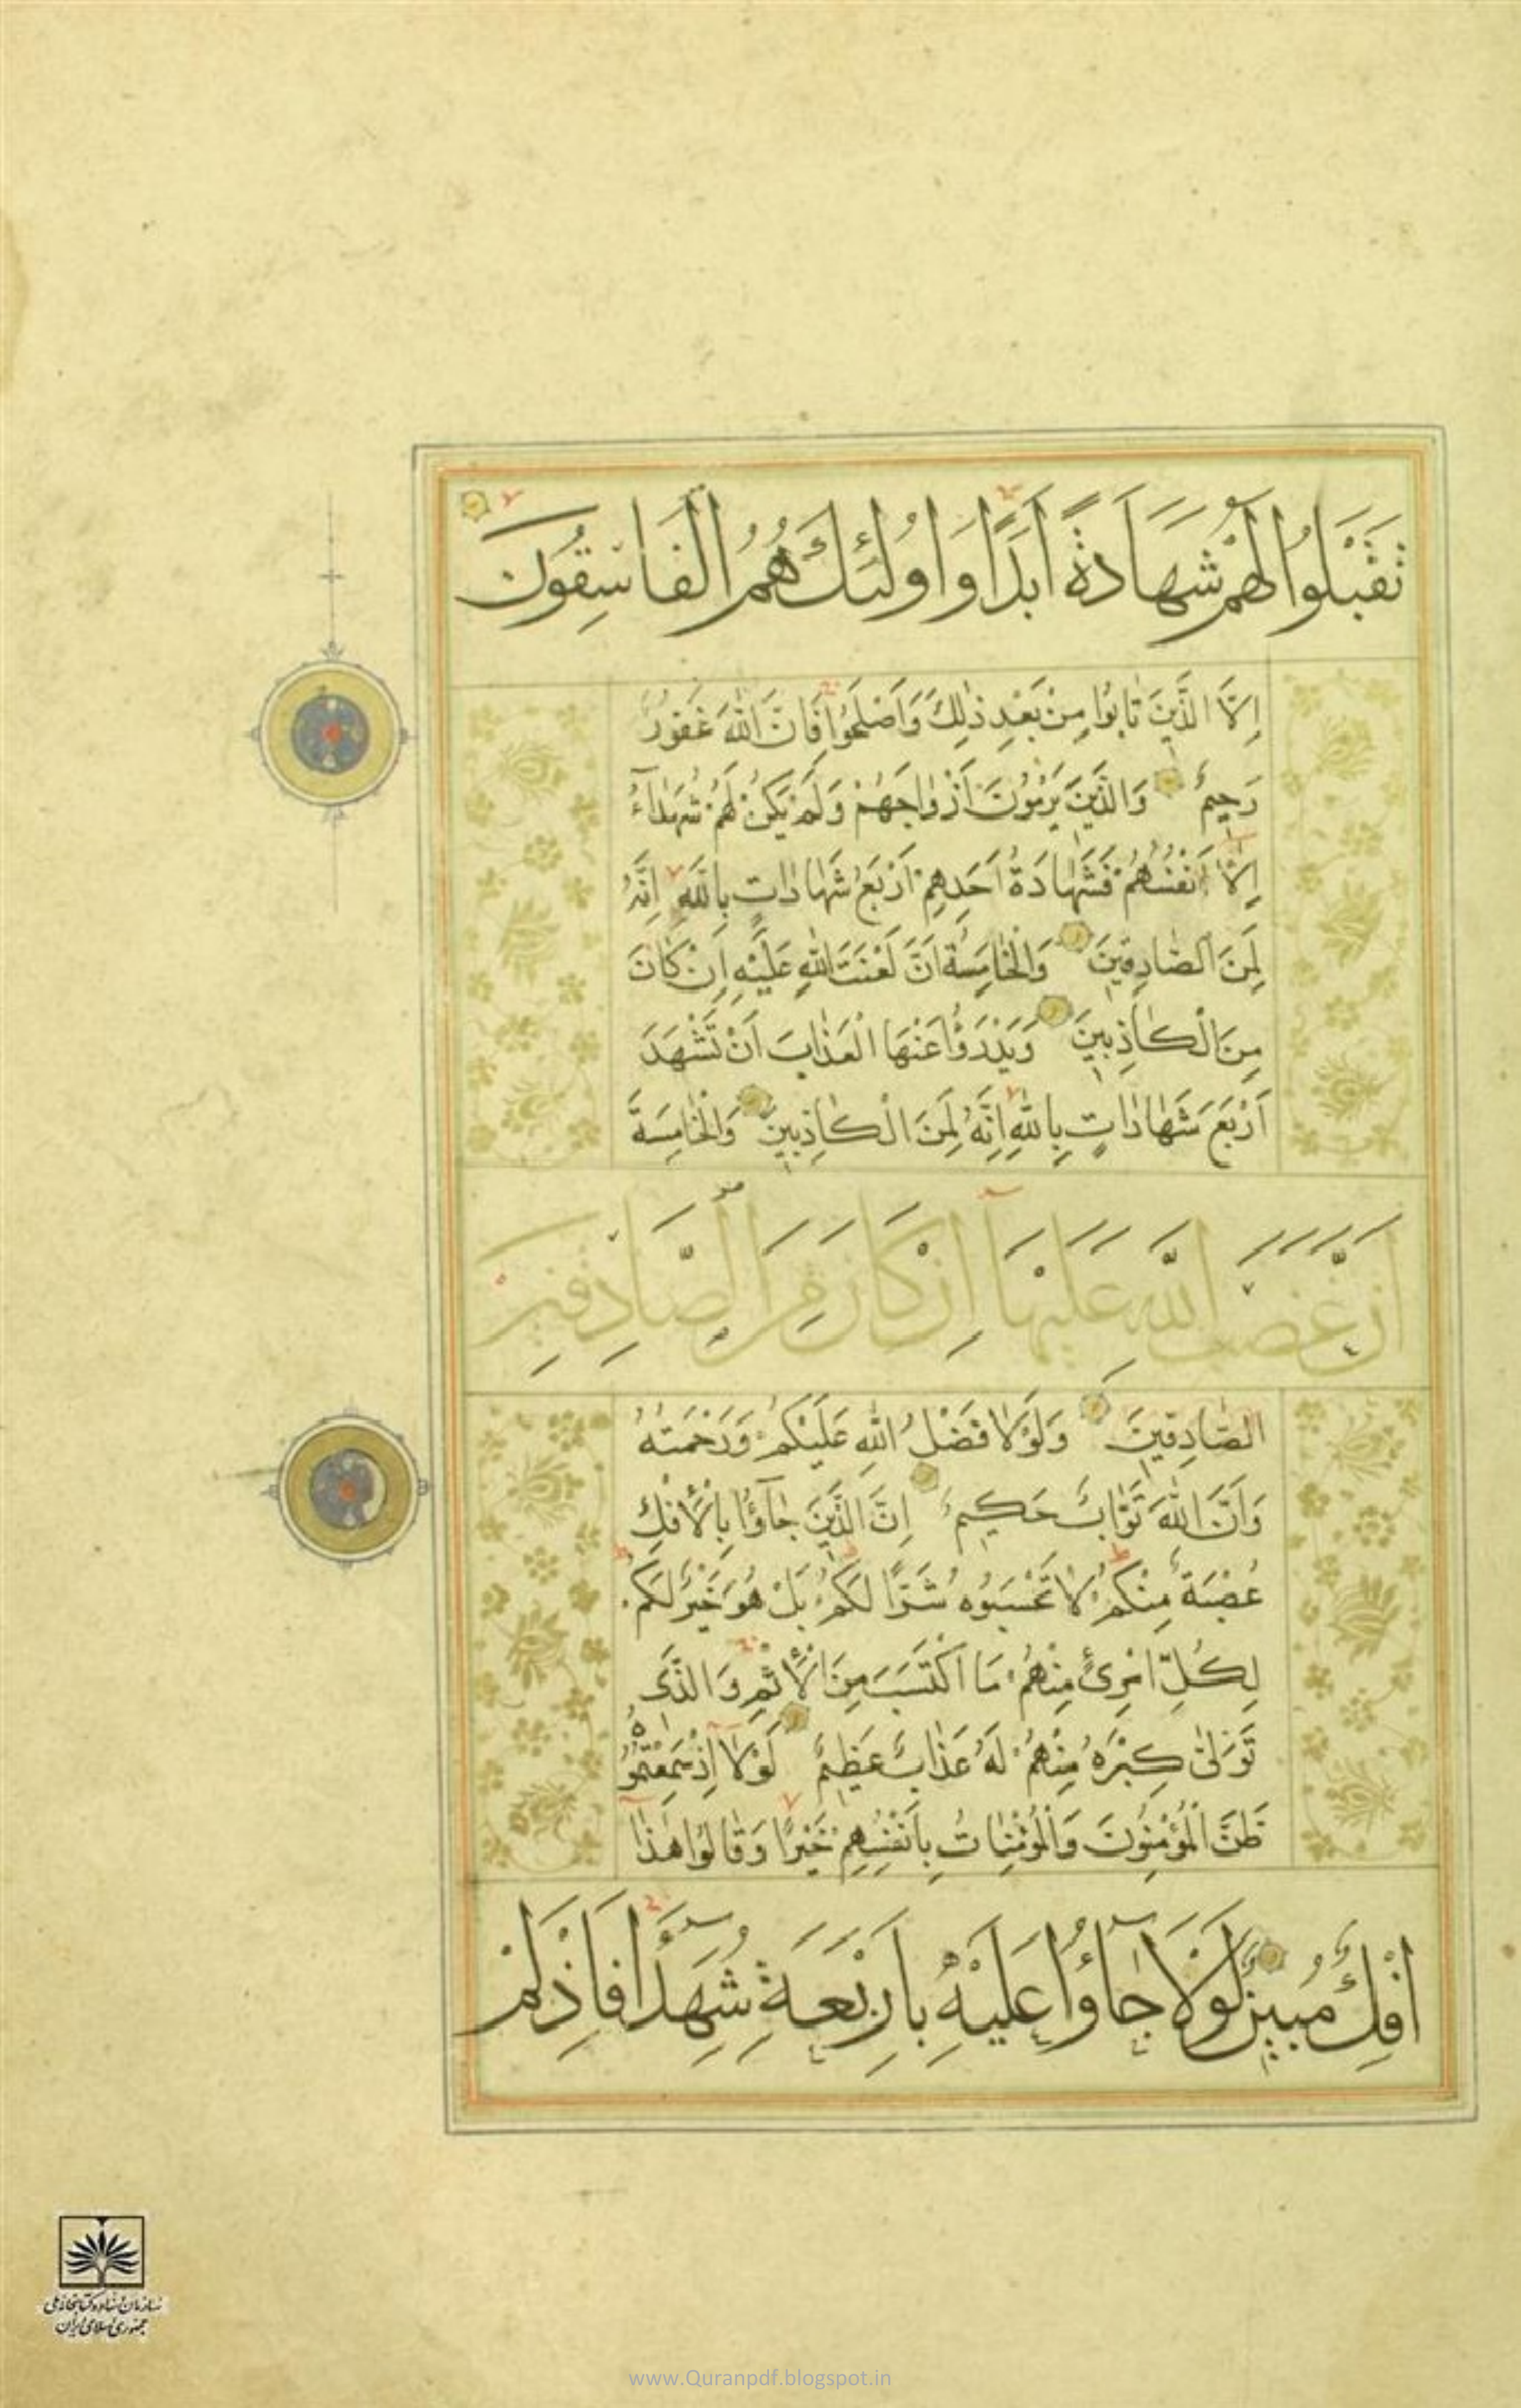 تَقْبَلُوا لَهُمْ شَهَادَةً اَبَدًا وَاُولٰئِكَ هُمُ الْفَاسِقُونَ
اِلَّا الَّذِينَ تَابُوا مِنْ بَعْدِ ذٰلِكَ وَاَصْلَحُوا فَاِنَّ اللّٰهَ غَفُورٌ
رَحِيمٌ وَالَّذِينَ يَرْمُونَ اَزْوٰاجَهُمْ وَلَمْ يَكُنْ لَهُمْ شُهَدٰآءُ
اِلَّا اَنْفُسُهُمْ فَشَهٰادَةُ اَحَدِهِمْ اَرْبَعُ شَهٰادٰاتٍ بِاللّٰهِ اِنَّهُ
لَمِنَ الصّٰادِقِينَ وَالْخٰامِسَةُ اَنَّ لَعْنَتَ اللّٰهِ عَلَيْهِ اِنْ كٰانَ
مِنَ الْكٰاذِبِينَ وَيَدْرَؤُا عَنْهَا الْعَذٰابَ اَنْ تَشْهَدَ
اَرْبَعَ شَهٰادٰاتٍ بِاللّٰهِ اِنَّهُ لَمِنَ الْكٰاذِبِينَ وَالْخٰامِسَةَ
اَنَّ غَضَبَ اللّٰهِ عَلَيْهَا اِنْ كَانَ مِنَ الصَّادِقِينَ
الصّٰادِقِينَ وَلَوْلٰا فَضْلُ اللّٰهِ عَلَيْكُمْ وَرَحْمَتُهُ
وَاَنَّ اللّٰهَ تَوّٰابٌ حَكِيمٌ اِنَّ الَّذِينَ جٰآؤُا بِالْاِفْكِ
عُصْبَةٌ مِنْكُمْ لٰا تَحْسَبُوهُ شَرًّا لَكُمْ بَلْ هُوَ خَيْرٌ لَكُمْ
لِكُلِّ امْرِئٍ مِنْهُمْ مَا اكْتَسَبَ مِنَ الْاِثْمِ وَالَّذِى
تَوَلّٰى كِبْرَهُ مِنْهُمْ لَهُ عَذٰابٌ عَظِيمٌ لَوْلٰا اِذْ سَمِعْتُمُوهُ
ظَنَّ الْمُؤْمِنُونَ وَالْمُؤْمِنٰاتُ بِاَنْفُسِهِمْ خَيْرًا وَقٰالُوا هٰذٰا
اِفْكٌ مُبِينٌ لَوْلَا جٰآؤُا عَلَيْهِ بِاَرْبَعَةِ شُهَدَآءَ فَاِذْ لَمْ
سازمان اسناد و کتابخانه ملی
جمهوری اسلامی ایران
www.Quranpdf.blogspot.in